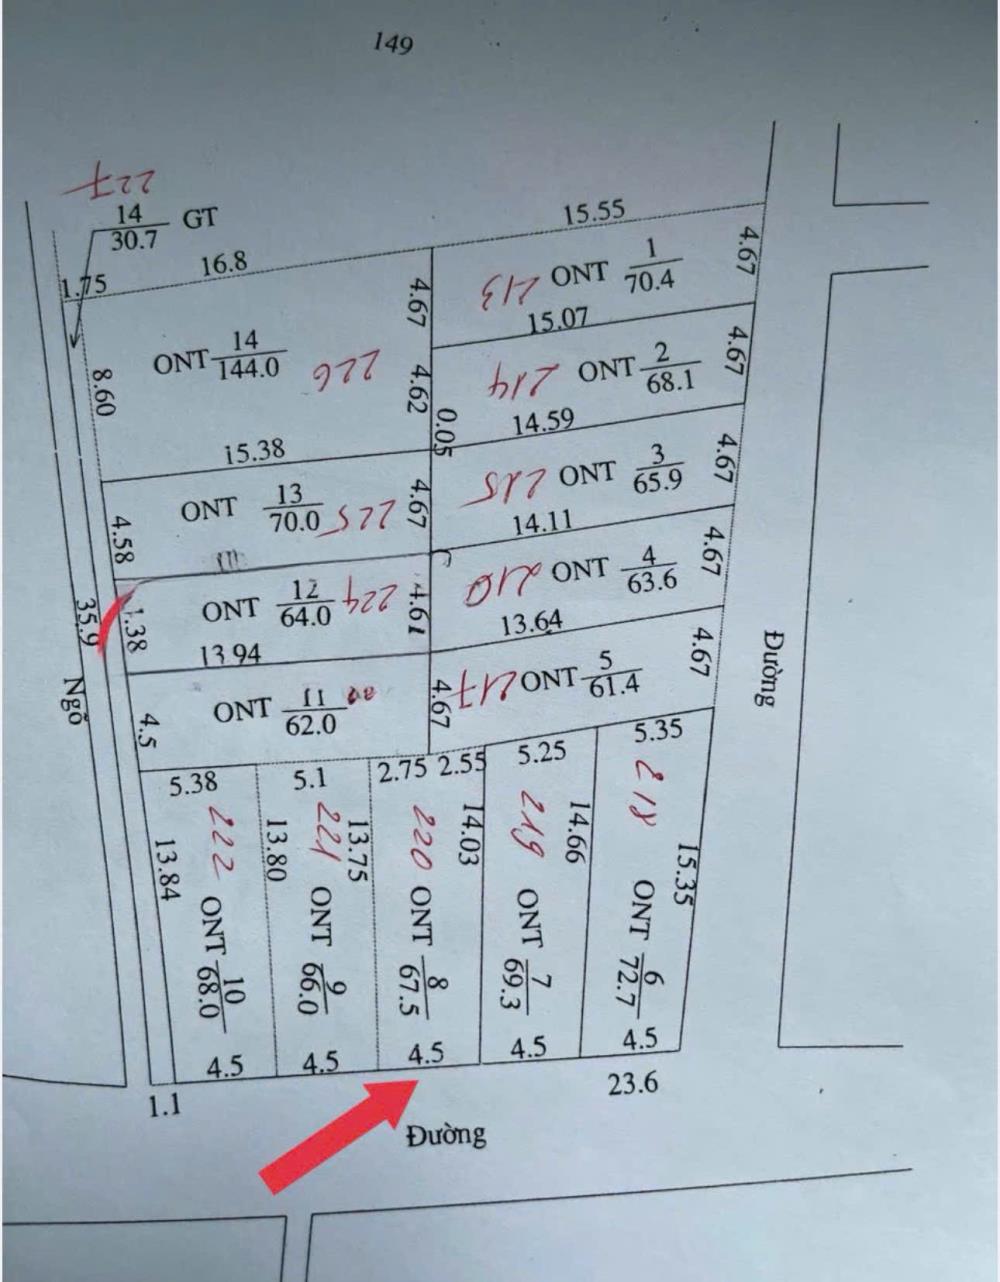 149
227
14
30.7
GT
15.55
16.8
1.75
4.67
213
ONT
1
70.4
4.67
15.07
ONT
14
144.0
226
4.62
214
ONT
2
68.1
4.67
8.60
0.05
14.59
15.38
ONT
13
70.0
225
4.67
215
ONT
3
65.9
4.67
14.11
4.58
ONT
12
64.0
224
4.61
ONT
4
63.6
4.67
13.64
35.9
13.94
Ngõ
ONT
11
62.0
4.67
217
ONT
5
61.4
4.67
Đường
4.5
5.38
5.1
2.75
2.55
5.25
5.35
222
221
220
219
218
13.84
13.80
13.75
14.03
14.66
15.35
ONT
10
68.0
ONT
9
66.0
ONT
8
67.5
ONT
7
69.3
ONT
6
72.7
4.5
4.5
4.5
4.5
4.5
1.1
23.6
Đường